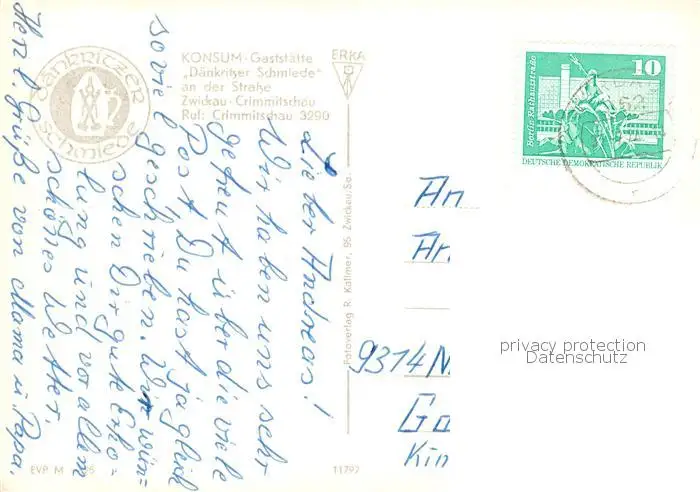 KONSUM-Gaststätte
„Dänkritzer Schmiede"
an der Straße
Zwickau-Crimmitschau
Ruf: Crimmitschau 3290
ERKA
DÄNKRITZER
Schmiede
Lieber Andreas!
Wir haben uns sehr
gefreut über die viele
Post, Du hast ja gleich
soviel geschrieben. Wir wün=
schen Dir gute Erho=
lung und vor allem
schönes Wetter.
Herzl. Grüße von Mama u. Papa.
Fotoverlag R. Kallmer, 95 Zwickau/Sa.
EVP M
11797
10
Berlin-Rathausstraße
DEUTSCHE DEMOKRATISCHE REPUBLIK
An
9314 N
Kin
privacy protection
Datenschutz